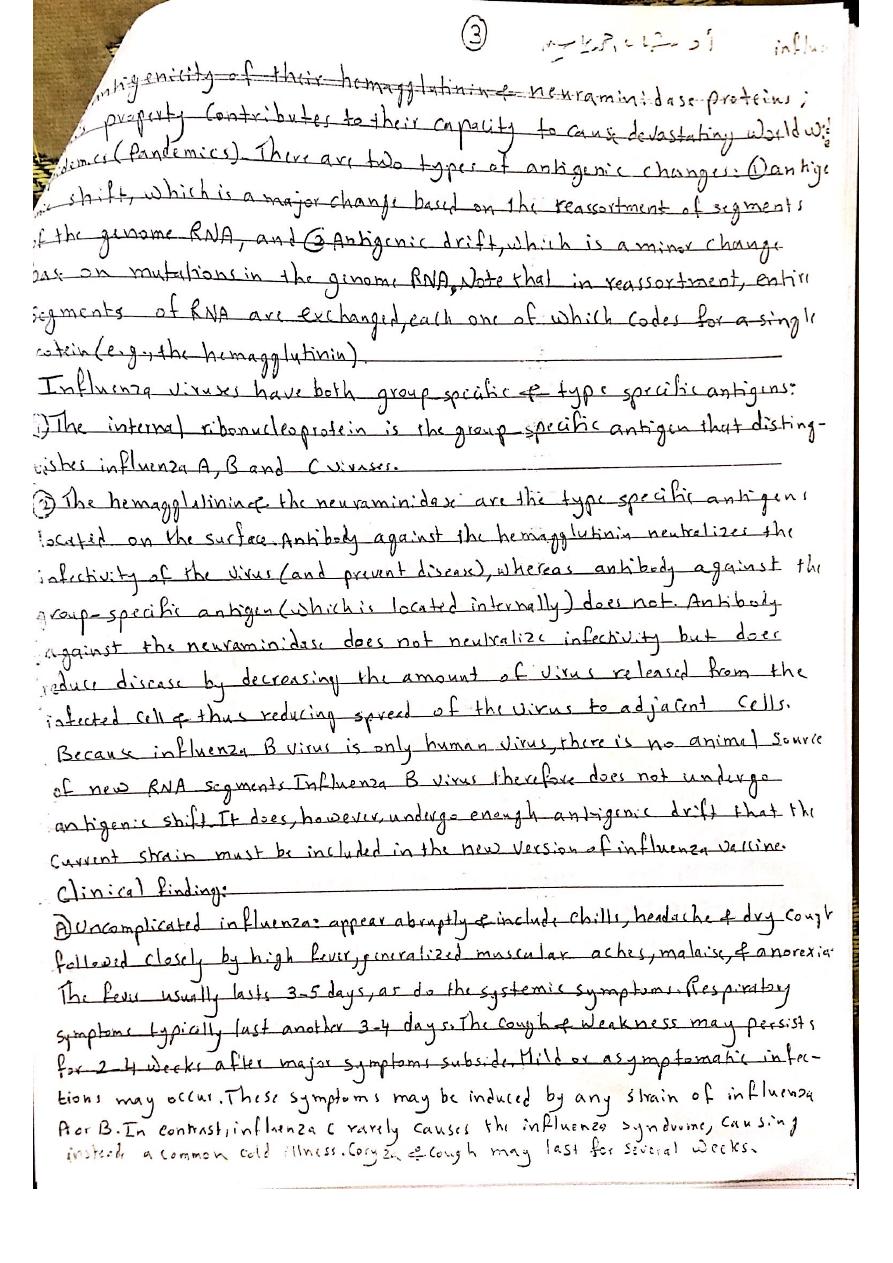 ③ influ
ntigenicity of their hemagglutinin & neuraminidase proteins;
s property contributes to their capacity to cause devastating world wid
demics (Pandemics). There are two types of antigenic changes: ① antige
nic shift, which is a major change based on the reassortment of segments
f the genome RNA, and ② Antigenic drift, which is a minor change
bas on mutations in the genome RNA, Note that in reassortment, entire
segments of RNA are exchanged, each one of which codes for a single
rotein (e.g., the hemagglutinin)
Influenza viruses have both group specific & type specific antigens:
①The internal ribonucleoprotein is the group-specific antigen that disting-
uishes influenza A, B and C viruses.
② The hemagglutinin & the neuraminidase are the type specific antigens
located on the surface. Antibody against the hemagglutinin neutralizes the
infectivity of the virus (and prevent disease), whereas antibody against the
group-specific antigen (which is located internally) does not. Antibody
against the neuraminidase does not neutralize infectivity but does
reduce disease by decreasing the amount of virus released from the
infected cell & thus reducing spread of the virus to adjacent cells.
Because influenza B virus is only human virus, there is no animal source
of new RNA segments. Influenza B virus therefore does not undergo
antigenic shift. It does, however, undergo enough antigenic drift that the
current strain must be included in the new version of influenza vaccine.
Clinical finding:
Ⓐ Uncomplicated influenza: appear abruptly & include chills, headache & dry cough
followed closely by high fever, generalized muscular aches, malaise, & anorexia.
The fever usually lasts 3-5 days, as do the systemic symptoms. Respiratory
symptoms typically last another 3-4 days. The cough & weakness may persists
for 2-4 weeks after major symptoms subside. Mild or asymptomatic infec-
tions may occur. These symptoms may be induced by any strain of influenza
A or B. In contrast, influenza C rarely causes the influenza syndrome, causing
instede a common cold illness. Coryza & cough may last for several weeks.